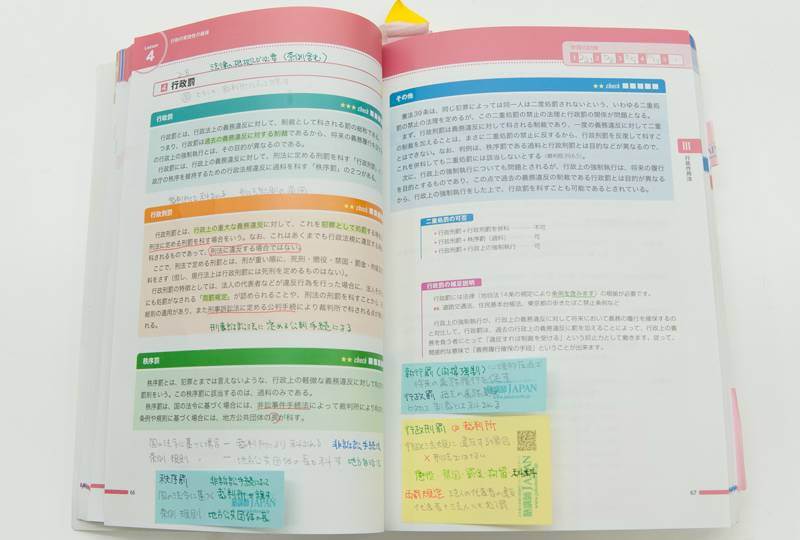 Lesson
4
行政の実効性の確保
法律の根拠が必要（条例含む）
4 行政罰
行政罰
★★★ check
行政罰とは、行政法上の義務違反に対して、制裁として科される罰の総称であ
つまり、行政罰は過去の義務違反に対する制裁であるから、将来の義務の
の行政上の強制執行とは、その目的が異なるのである。
行政罰には、行政上の義務違反に対して、刑法に定める刑罰を科す「行政刑罰」
政庁の秩序を維持するための行政法規違反に過料を科す「秩序罰」の2つがある。
行政刑罰
★★ check
行政刑罰とは、行政上の重大な義務違反に対して、これを犯罪として処罰する
刑法に定める刑罰を科す場合をいう。なお、これはあくまでも行政法規に違反する
科されるものであって、刑法に違反する場合ではない。
ここで、刑法で定める刑罰とは、刑が重い順に、死刑・懲役・禁固・罰金・拘留
料をさす（但し、現行法上は行政刑罰には死刑を定めるものはない）。
行政刑罰の特徴としては、法人の代表者などが違反行為を行った場合に、法人そ
にも処罰がなされる「両罰規定」が認められることや、刑法の刑罰を科すことから、
総則の適用があり、また刑事訴訟法に定める公判手続により裁判所で科される点が
る。
刑事訴訟法に定める公判手続にする
秩序罰
★★ check
秩序罰とは、犯罪とまでは言えないような、行政上の軽微な義務違反に対して科
罰則をいう。この秩序罰に該当するのは、過料のみである。
秩序罰は、国の法令に基づく場合には、非訟事件手続法によって裁判所により科
条例や規則に基づく場合には、地方公共団体の長が科す。
国の法令に基づく場合 ー 裁判所により科される 非訟事件手続法
条例・規則 ー 地方公共団体の長が科す 地方自治法
秩序罰 非訟事件手続法によって
国の法令に基づく 裁判所が科す
条例・規則 地方公共団体の長
66
その他
★★ check
憲法39条は、同じ犯罪によっては同一人は二重処罰されないという、いわゆる二重処
罰の禁止の法理を定めるが、この二重処罰の禁止の法理と行政罰の関係が問題となる。
まず、行政刑罰は義務違反に対して科される制裁であり、一度の義務違反に対して二重
の制裁を加えることは、まさに二重処罰の禁止に反するから、行政刑罰を反復して科すこ
とはできない。なお、判例は、秩序罰である過料と行政刑罰とは目的などが異なるので、
これを併科しても二重処罰には該当しないとする（最判昭39.6.5）。
次に、行政上の強制執行についても問題とされるが、行政上の強制執行は、将来の履行
を目的とするものであり、この点で過去の義務違反の制裁である行政罰とは目的が異なる
から、行政上の強制執行をした上で、行政罰を科すことも可能であるとされている。
二重処罰の可否
・行政刑罰＋行政刑罰を併科………不可
・行政刑罰＋秩序罰（過料）………可
・行政刑罰＋行政上の強制執行……可
行政罰の補足説明
行政罰には法律（地自法14条の規定により条例を含みます）の根拠が必要です。
道路交通法、住民基本台帳法、東京都の歩きたばこ禁止条例など
行政上の強制執行が、行政上の義務違反に対して将来において義務の履行を確保するの
と対比して、行政罰は、過去の行政上の義務違反に罰を加えることによって、行政上の義
務を負う者にとって「違反すれば制裁を受ける」という抑止力として働きます。従って、
間接的な意味で「義務履行確保の手段」ということが出来ます。
III
行政作用法
執行罰（間接強制）
将来の義務履行を促す
行政罰 過去の義務違反
JAPAN
行政刑罰 裁判所
×刑法ではない
懲役 禁固 罰金 拘留 科料
両罰規定
JAPAN
67